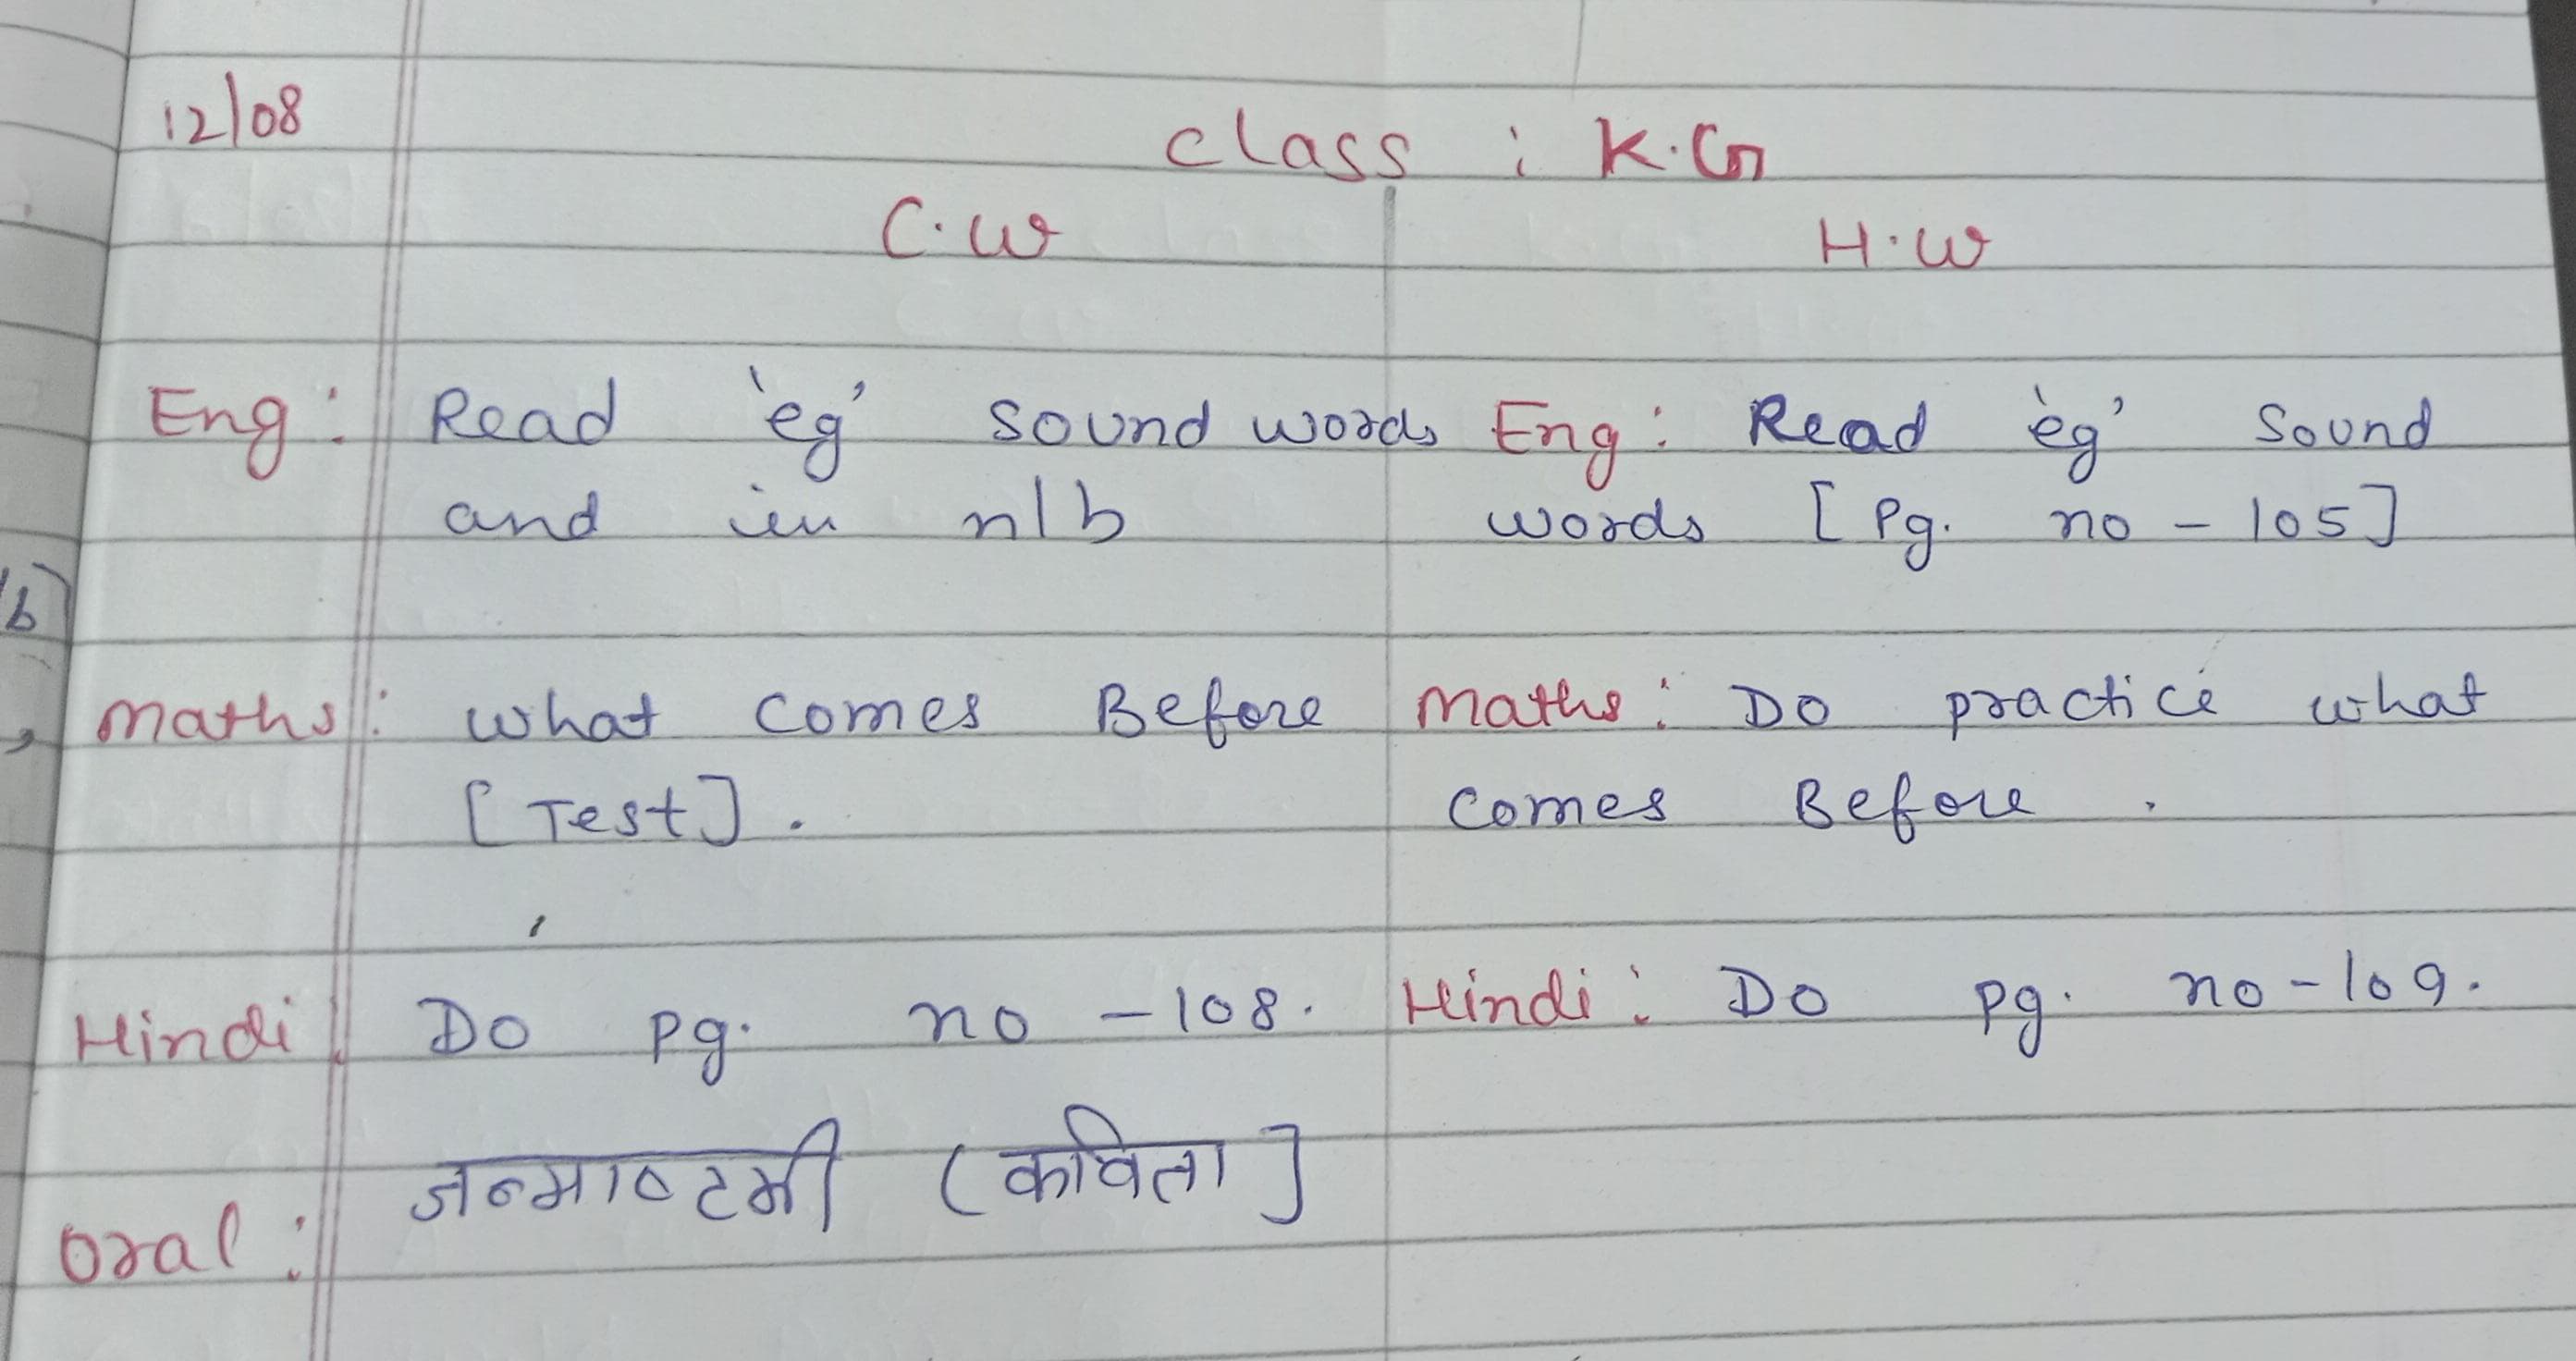 12/08
class : K.G
C.W
H.W
Eng: Read 'eg' sound words
and in n/b
Eng: Read 'eg' Sound
words [Pg. no - 105]
Maths: What comes Before
[Test].
Maths: Do practice what
comes Before.
Hindi: Do pg. no - 108.
Hindi: Do pg. no - 109.
Oral: जन्माष्टमी (कविता]
b]
,